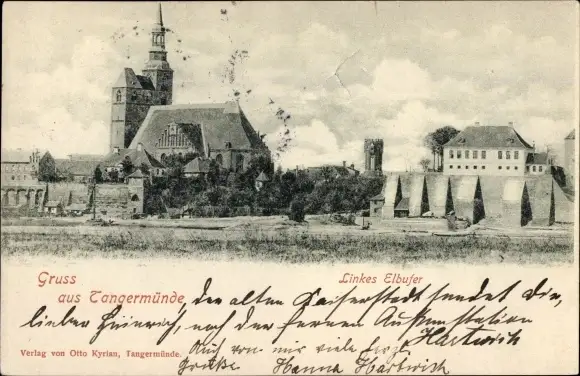 Gruss
aus Tangermünde
Linkes Elbufer
der alten Kaiserstadt sendet dir,
lieber Heinrich, nach der fernen
Hartwich
Auch von mir viele
Grüße Hanna Hartwich
Verlag von Otto Kyrian, Tangermünde.